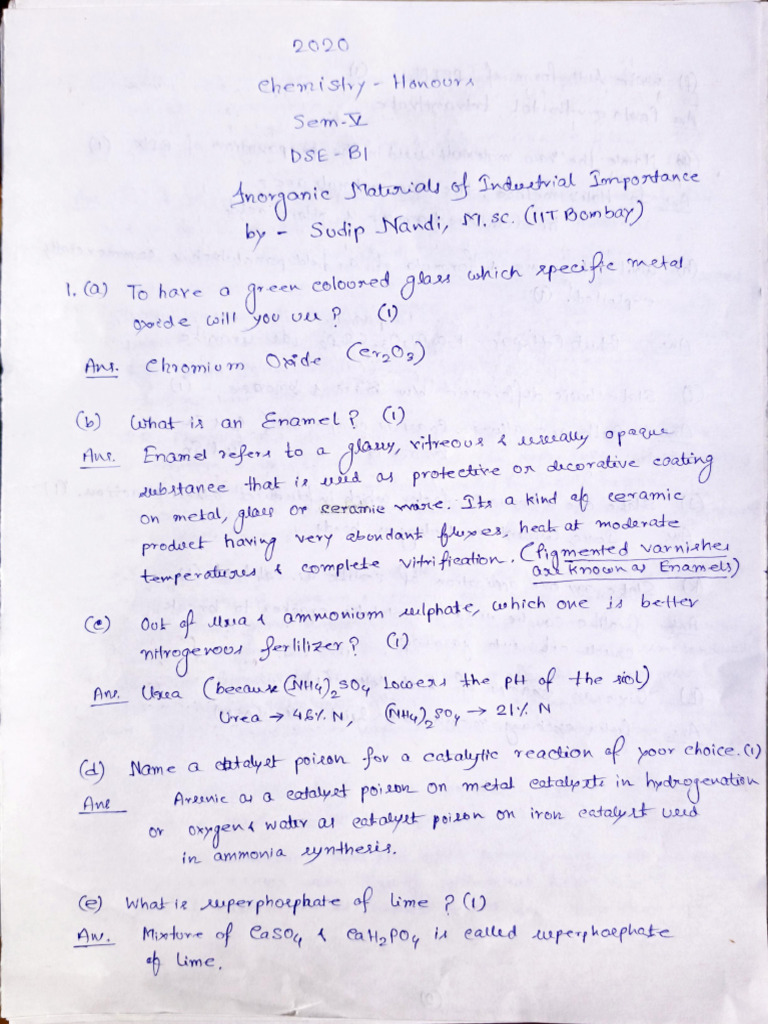 2020
Chemistry - Honours
Sem-V
DSE-B1
Inorganic Materials of Industrial Importance
by - Sudip Nandi, M.Sc. (IIT Bombay)
1. (a) To have a green coloured glass which specific metal
oxide will you use? (1)
Ans. Chromium Oxide (Cr2O3)
(b) What is an Enamel? (1)
Ans. Enamel refers to a glassy, vitreous & usually opaque
substance that is used as protective or decorative coating
on metal, glass or ceramic ware. Its a kind of ceramic
product having very abundant fluxes, heat at moderate
temperatures & complete vitrification. (Pigmented varnishes
are known as Enamels)
(c) Out of Urea & ammonium sulphate, which one is better
nitrogenous fertilizer? (1)
Ans. Urea (because (NH4)2SO4 lowers the pH of the soil)
Urea → 46% N, (NH4)2SO4 → 21% N
(d) Name a catalyst poison for a catalytic reaction of your choice. (1)
Ans Arsenic as a catalyst poison on metal catalysts in hydrogenation
or oxygen & water as catalyst poison on iron catalyst used
in ammonia synthesis.
(e) What is superphosphate of lime? (1)
Ans. Mixture of CaSO4 & CaH2PO4 is called superphosphate
of lime.